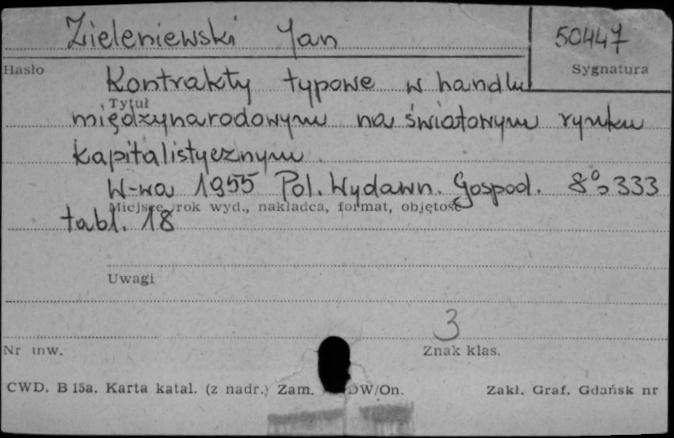 Zieleniewski Jan
50447
Hasło
Sygnatura
Kontrakty typowe w handlu
Tytuł
międzynarodowym na światowym rynku
kapitalistycznym.
W-wa 1955 Pol. Wydawn. Gospod. 8° 333
Miejsce, rok wyd., nakładca, format, objętość
tabl. 18
Uwagi
3
Nr inw.
Znak klas.
CWD. B 15a. Karta katal. (z nadr.) Zam. DW/On.
Zakł. Graf. Gdańsk nr